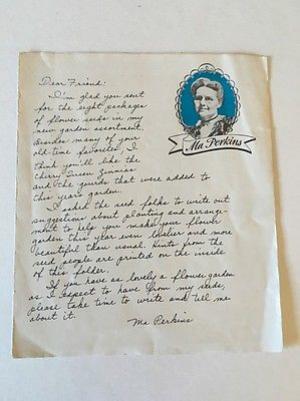 Dear Friend:
I'm glad you sent
for the eight packages
of flower seeds in my
new garden assortment.
Besides many of your
old-time favorites, I
think you'll like the
Cherry Queen Zinnias
and the gourds that were added to
this year's garden.
Ma Perkins
I asked the seed folks to write out
suggestions about planting and arrange-
ment to help you make your flower
garden this year even lovelier and more
beautiful than usual. Hints from the
seed people are printed on the inside
of this folder.
If you have as lovely a flower garden
as I expect to have from my seeds,
please take time to write and tell me
about it.
Ma Perkins